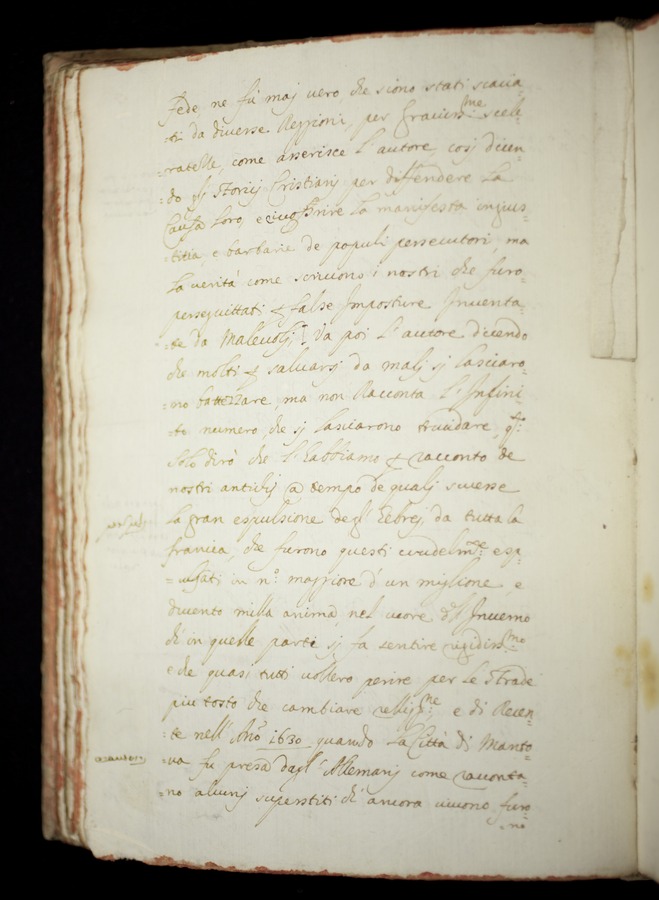 Fede, ne fù maj vero, che siono stati scacia
=ti da diverse Reggioni, per gravissme scell
=ratelle, come asserisce l'autore, cosj dicen
=do gli Storicj Cristianj per diffendere la
Causa loro, e la manifesta ingius
=titia, e barbarie de populi persecutori, ma
la verità come scrivono i nostri che furo
perseguittati & false Imposture Inventa
=te da Malevolj. Và poi l'autore dicendo
che molti & salvarsj da malj sj lasciaro
=no battezzare, ma non Racconta l'Infini
=to numero, che sj lasciarono trucidare,
solo dirò che l'habbiamo & racconto de
nostri antichj @ tempo de qualj successe
la gran espulsione degl'Eebrej da tutta la
francia, che furono questi crudelmte esp
=ulsati in no: maggiore d'un miglione, e
ducento milla anime, nel cuore dell'Inverno
ch'in quelle parti sj fa sentire rigidissmo
e che quasi tutti vollero perire per le Strade
piu tosto che cambiare relligne, e di Recen
=te nell'Anno 1630 quando La Città di Manto
=va fu presa dagl'Allemanj come raconta
=no alcunj superstiti ch'ancora vivono, furo
=no